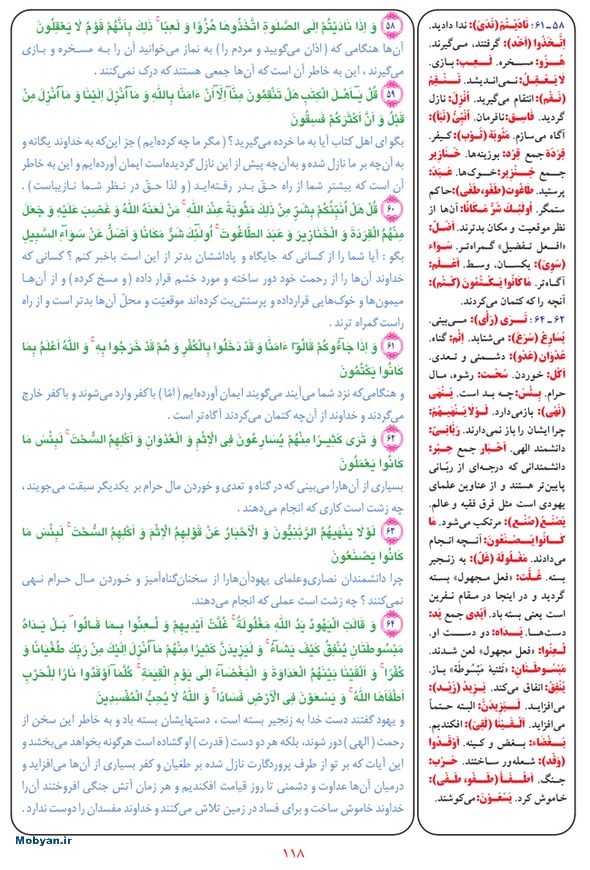 ۵۸ـ۶۱: نَادَیْتُمْ (نَدَیَ): ندا دادید.
اِتَّخَذُوا (اَخَذَ): گرفتند، می‌گیرند.
هُـزُو: مسخره. لَـعِب: بازی.
لَا یَـعْقِلُـونَ: نمی‌اندیشد. تَـنْـقِمُ
(نَقَمَ): انتقام می‌گیرید. اَنْزَلَ: نازل
گردید. فَاسِـق: نافرمان. اُنَبِّئُ (نَبَأَ):
آگاه می‌سازم. مَثُوبَة (ثَوَبَ): کیفر.
قِرَدَة جمع قِرْد: بوزینه‌ها. خَنَازیر
جـمـع خِـنْزیر: خوک‌ها. عَـبَـدَ:
پرستید. طَاغُوت (طَغَوَ،طَغَیَ): حاکم
ستمگر. اُولٰئِـكَ شَرٌّ مَكَانًا: آن‌ها از
نظر موقعیت و مکان بدترند. اَضَلُّ:
«افـعل تـفضیل» گمراه‌تر. سَـوَاء
(سَوِیَ): یکسان، وسط. اَعْـلَمُ:
آگاه‌تر. مَا كَانُوا یَـكْـتُمُونَ (كَتَمَ):
آنچه را که کتمان می‌کردند.
۶۲ـ۶۴: تَـرَی (رَأَیَ): می‌بینی.
یُسَارِعُ (سَرَعَ): می‌شتابد. اِثْم: گناه.
عُدْوَان (عَدَوَ): دشـمنی و تعدی.
اَكْل: خوردن. سُحْت: رشوه، مال
حرام. بِـئْسَ: چه بـد است. یَـنْهَی
(نَهَیَ): بازمی‌دارد. لَـوْلَا یَـنْهَیٰهُمُ:
چرا ایشان را باز نمی‌دارند. رَبَّانِیّ:
دانشمند الهی. اَحْبَار جمع حِبْر:
دانشمندانی که درجه‌ای از ربّانی
پایین‌تر هستند و از عناوین علمای
یهودی است مثل فرق فقیه و عالم.
یَصْنَعُ (صَنَعَ): مرتکب می‌شود. مَا
كَـانُوا یَـصْنَعُونَ: آنـچه انجام
می‌دادند. مَغْلُولَة (غَلَّ): به زنجیر
بسته. غُـلَّتْ: «فعل مجهول» بسته
گردید و در اینجا در مقام نـفرین
است یعنی بسته باد. اَیْدی جمع یَد:
دست‌هـا. یَـدَاهُ: دو دسـت او.
لُعِنُوا: «فعل مجهول» لعن شدند.
مَبْسُوطَتَانِ: «تثنیهٔ مَبْسُوطَة» باز.
یُنْفِقُ: انفاق می‌کند. یَـزیدُ (زَیَـدَ):
می‌افزاید. لَـیَزیدَنَّ: البته حـتماً
می‌افزاید. اَلْقَیْنَا (لَقِیَ): افکندیم.
بَـغْضَاء: بـغض و کینه. اَوْقَدُوا
(وَقَدَ): شعله‌ور سـاخـتند. حَرْب:
جنگ. اَطْـفَـأَ (طَـفَـوَ، طَفِیَ):
خاموش کرد. یَسْعَوْنَ: می‌کوشند.
۵۸ وَ اِذَا نَادَیْتُمْ اِلَی الصَّلٰوةِ اتَّخَذُوهَا هُزُوًا وَ لَعِبًا ۚ ذٰلِكَ بِاَنَّهُمْ قَوْمٌ لَا یَعْقِلُونَ
آن‌ها هنگامی که (اذان می‌گویید و مردم را) به نماز می‌خوانید آن را بـه مسـخره و بـازی
می‌گیرند، این به خاطر آن است که آن‌ها جمعی هستند که درک نمی‌کنند .
۵۹ قُلْ یَٓاَهْلَ الْكِتٰبِ هَلْ تَنْقِمُونَ مِنَّٓا اِلَّٓا اَنْ ءَامَنَّا بِاللهِ وَ مَٓا اُنْزِلَ اِلَیْنَا وَ مَٓا اُنْزِلَ مِنْ
قَبْلُ وَ اَنَّ اَكْثَرَكُمْ فٰسِقُونَ
بگو ای اهل کتاب آیا به ما خرده می‌گیرید؟ ( مگر ما چه کرده‌ایم ) جز این‌که به خداوند یگانه و
به آن‌چه بر ما نازل شده و به‌آن‌چه پیش از این نازل گردیده‌است ایمان آورده‌ایم و این به خاطر
آن است که بیشتر شما از راه حـق بـدر رفته‌ایـد ( و لذا حقّ در نظر شـما نـازیباست ) .
۶۰ قُلْ هَلْ اُنَبِّئُكُمْ بِشَرٍّ مِنْ ذٰلِكَ مَثُوبَةً عِنْدَ اللهِ ۚ مَنْ لَعَنَهُ اللهُ وَ غَضِبَ عَلَیْهِ وَ جَعَلَ
مِنْهُمُ الْقِرَدَةَ وَ الْخَنَازِیرَ وَ عَبَدَ الطَّاغُوتَ ۚ اُولٰٓئِكَ شَرٌّ مَكَانًا وَ اَضَلُّ عَنْ سَوَٓاءِ السَّبِیلِ
بگو : آیا شما را از کسانی که جایگاه و پاداششان بدتر از این است باخبر کنم ؟ کسانی که
خداوند آن‌ها را از رحمت خود دور ساخته و مورد خشم قرار داده ( و مسخ کرده ) و از آن‌هـا
میمون‌ها و خوک‌هایی قرارداده و پرستش‌بت کرده‌اند موقعیّت و محلّ آن‌ها بدتر است و از راه
راست گمراه ترند .
۶۱ وَ اِذَا جَٓاءُوكُمْ قَالُوٓا ءَامَنَّا وَ قَدْ دَخَلُوا بِالْكُفْرِ وَ هُمْ قَدْ خَرَجُوا بِهِ ۚ وَ اللهُ اَعْلَمُ بِمَا
كَانُوا یَكْتُمُونَ
و هنگامی‌که نزد شما می‌آیند می‌گویند ایمان آورده‌ایم ( امّا ) باکفر وارد می‌شوند و باکفر خارج
می‌گردند و خداوند از آن‌چه کتمان می‌کردند آگاه‌تر است .
۶۲ وَ تَرَی كَثِیرًا مِنْهُمْ یُسَارِعُونَ فِی الْاِثْمِ وَ الْعُدْوَانِ وَ اَكْلِهِمُ السُّحْتَ ۚ لَبِئْسَ مَا
كَانُوا یَعْمَلُونَ
بسیاری از آن‌هارا می‌بینی که در گناه و تعدی و خوردن مال حرام بر یکدیگر سبقت می‌جویند ،
چه زشت است کاری که انجام می‌دهند .
۶۳ لَوْلَا یَنْهٰیهُمُ الرَّبّٰنِیُّونَ وَ الْاَحْبَارُ عَنْ قَوْلِهِمُ الْاِثْمَ وَ اَكْلِهِمُ السُّحْتَ ۚ لَبِئْسَ مَا
كَانُوا یَصْنَعُونَ
چرا دانشمندان نصاری‌وعلمای یهودآن‌هارا از سخنان‌گناه‌آمیز و خـوردن مـال حـرام نـهی
نمی‌کنند ؟ چه زشت است عملی که انجام می‌دهند.
۶۴ وَ قَالَتِ الْیَهُودُ یَدُ اللهِ مَغْلُولَةٌ ۚ غُلَّتْ اَیْدِیهِمْ وَ لُـعِنُوا بِـمَا قَـالُوا ۘ بَـلْ یَـدَاهُ
مَبْسُوطَتَانِ یُنْفِقُ كَیْفَ یَشَٓاءُ ۚ وَ لَیَزِیدَنَّ كَثِیرًا مِنْهُمْ مَٓا اُنْزِلَ اِلَیْكَ مِنْ رَبِّكَ طُغْیَانًا وَ
كُفْرًا ۚ وَ اَلْقَیْنَا بَیْنَهُمُ الْعَدَاوَةَ وَ الْبَغْضَٓاءَ اِلَی یَوْمِ الْقِیٰمَةِ ۚ كُلَّمَٓا اَوْقَدُوا نَارًا لِلْحَرْبِ
اَطْفَاَهَا اللهُ ۚ وَ یَسْعَوْنَ فِی الْاَرْضِ فَسَادًا ۚ وَ اللهُ لَا یُحِبُّ الْمُفْسِدِینَ
و یهود گفتند دست خدا به زنجیر بسته است ، دستهایشان بسته باد و به خاطر این سخن از
رحمت ( الهی ) دور شوند، بلکه هر دو دست ( قدرت ) او گشاده است هرگونه بخواهد می‌بخشد و
این آیات که بر تو از طرف پروردگارت نازل شده بر طغیان و کفر بسیاری از آن‌ها می‌افزاید و
درمیان آن‌ها عداوت و دشمنی تا روز قیامت افکندیم و هر زمان آتش جنگی افروختند آن‌را
خداوند خاموش ساخت و برای فساد در زمین تلاش می‌کنند و خداوند مفسدان را دوست ندارد .
Mobyan.ir
۱۱۸